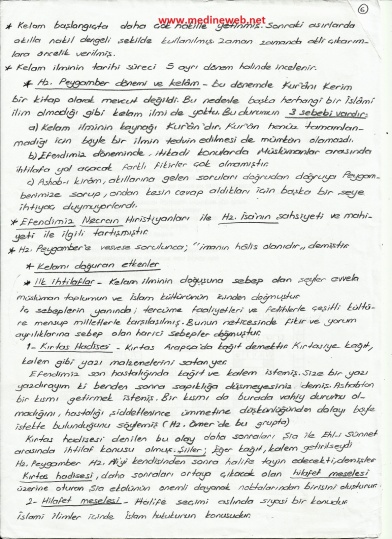 www.medineweb.net
6
* Kelam başlangıçta daha çok nakille yetinmiş. Sonraki asırlarda
akılla nakil dengeli şekilde kullanılmış zaman zamanda akli çıkarım-
lara öncelik verilmiş.
* Kelam ilminin tarihi süreci 5 ayrı dönem halinde incelenir.
* Hz. Peygamber dönemi ve kelâm - bu dönemde Kur'ânı Kerim
bir kitap olarak mevcut değildi. Bu nedenle başka herhangi bir İslâmi
ilim olmadığı gibi kelam ilmi de yoktu. Bu durumun 3 sebebi vardır:
a) Kelam ilminin kaynağı Kur'ân'dır. Kur'ân henüz tamamlan-
madığı için böyle bir ilmin tedvin edilmesi de mümkün olamazdı.
b) Efendimiz döneminde itikadi konularda Müslümanlar arasında
ihtilafa yol açacak farklı fikirler çok olmamıştır.
c) Ashab-ı kirâm, akıllarına gelen soruları doğrudan doğruya Peygam-
berimize sorup, ondan kesin cevap aldıkları için başka bir şeye
ihtiyaç duymuyorlardı.
* Efendimiz Necran Hıristiyanları ile Hz. İsa'nın şahsiyeti ve mahi-
yeti ile ilgili tartışmıştır
* Hz. Peygamber'e vesvese sorulunca; "imanın hâlis olanıdır" demiştir
* Kelamı doğuran etkenler
* İlk ihtilaflar - Kelam ilminin doğuşuna sebep olan şeyler evvela
müslüman toplumun ve İslam kültürünün kinden doğmuştur
İç sebeplerin yanında; tercüme faaliyetleri ve fetihlerle çeşitli kültü-
re mensup milletlerle karşılaşılmış. Bunun neticesinde fikir ve yorum
ayrılıklarına sebep olan harici sebepler doğmuştur
1- Kırtas Hadisesi - Kırtas Arapça'da kağıt demektir. Kırtasiye kağıt,
kalem gibi yazı malzemelerini satan yer
Efendimiz son hastalığında kağıt ve kalem istemiş. Size bir yazı
yazdırayım ki benden sonra sapıklığa düşmeyesiniz demiş. Ashabtan
bir kısmı getirmek istemiş. Bir kısmı da burada vahiy durumu ol-
madığını, hastalığı şiddetlenince ümmetine düşkünlüğünden dolayı böyle
istekte bulunduğunu söylemiş (Hz. Ömer'de bu grupta)
Kırtas hadisesi denilen bu olay daha sonraları Şia ile Ehl-i Sünnet
arasında ihtilaf konusu olmuş. Şiiler; Eğer kağıt, kalem getirilseydi
Hz. Peygamber Hz. Ali'yi kendisinden sonra halife tayin edecekti, demişler
Kırtas hadisesi, daha sonraları ortaya çıkacak olan hilafet meselesi
üzerine oturan Şia ekolünün önemli dayanak noktalarından birisini oluşturur.
2- Hilafet meselesi - Halife seçimi aslında siyasi bir konudur
İslami ilimler içinde İslam hukukunun konusudur